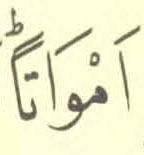 اَمْوَاتًاؕ